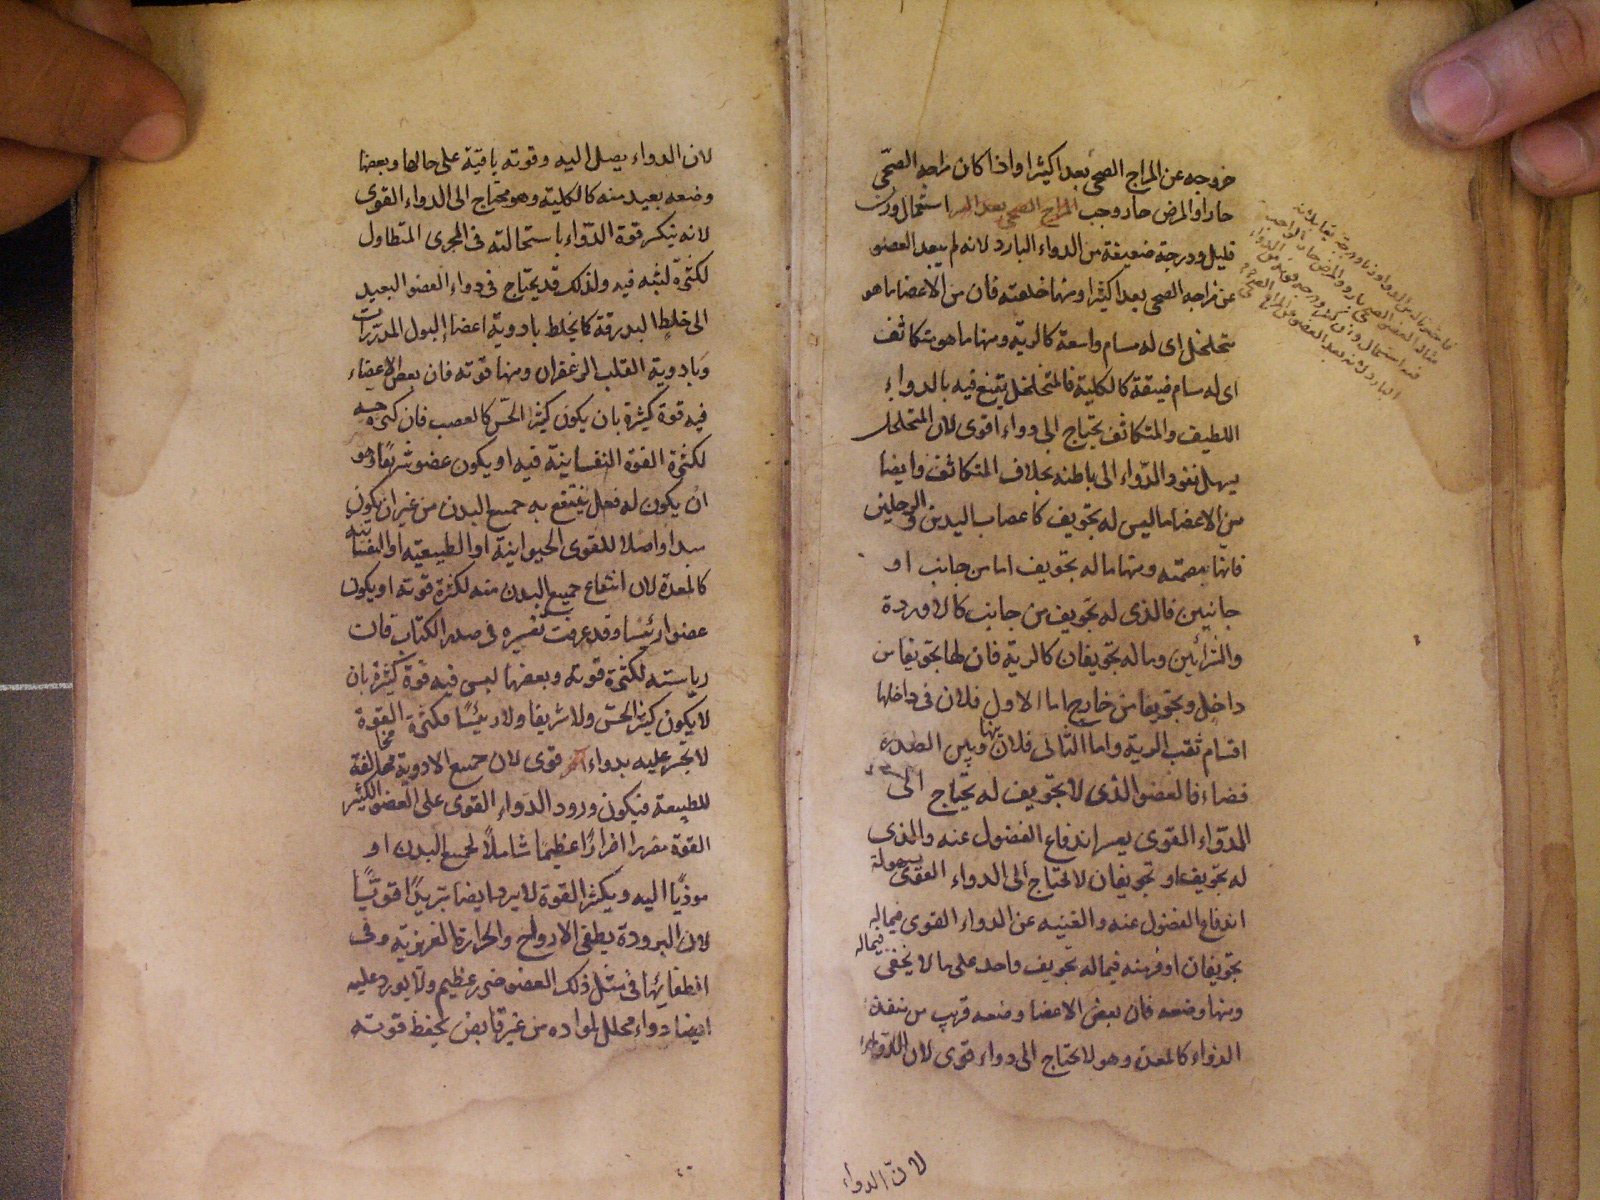 خروجه عن المزاج الصحى بعدا كثيرا واذا كان مزاجه الصحى
حارا والمرض حار وجب استعمال وزن
قليل ودرجة ضعيفة من الدواء البارد لانه لم يبعد العضو
عن مزاجه الصحى بعدا كثيرا ومنها خلقته فان من الاعضا ما هو
متخلخل اى له مسام واسعة كالرية ومنها ما هو متكاثف
اى له مسام ضيقة كالكلية فالمتخلخل يقنع فيه بالدواء
اللطيف والمتكاثف يحتاج الى دواء اقوى لان المتخلخل
يسهل نفوذ الدواء الى باطنه بخلاف المتكاثف وايضا
من الاعضا ما ليس له تجويف كاعصاب اليدين والرجلين
فانها مصمته ومنها ما له تجويف اما من جانب او
جانبين فالذى له تجويف من جانب كالاوردة
والشرائين وما له تجويفان كالرية فان لها تجويفا من
داخل وتجويفا من خارج اما الاول فلان فى داخلها
اقسام ثقب الرية واما الثانى فلان بينها وبين الصدر
فضاء فالعضو الذى لا تجويف له يحتاج الى
الدواء القوى يعسر اندفاع الفضول عنه والذى
له تجويف او تجويفان لا يحتاج الى الدواء القوى لسهولة
اندفاع الفضول عنه والغنيه عن الدواء القوى فيما له
تجويفان اوفر منه فيما له تجويف واحد على ما لا يخفى
ومنها وضعه فان بعض الاعضا وضعه قريب من منفذ
الدواء كالمعدة وهو لا يحتاج الى دواء قوى لان الدواء
لان الدواء
لان الدواء يصل اليه وقوته باقية على حالها وبعضها
وضعه بعيد منه كالكلية وهو محتاج الى الدواء القوى
لانه تنكسر قوة الدواء باستحالته فى المجرى المتطاول
لكثرة لبثه فيه ولذلك قد يحتاج فى دواء العضو البعيد
الى خلط البدرقة كما يخلط بادوية اعضا البول المدرات
وبادوية القلب الزعفران ومنها قوته فان بعض الاعضاء
فيه قوة كثيرة بان يكون كثير الحس كالعصب فان كثرة حسه
لكثرة القوة النفسانية فيه او يكون عضو شريفا وهو
ان يكون له فعل ينتفع به جميع البدن من غير ان يكون
مبدا واصلا للقوى الحيوانية او الطبيعية او النفسانية
كالمعدة لان انتفاع جميع البدن منه لكثرة قوته او يكون
عضوا رئيسا وقد عرفت تفسيره فى صدر الكتاب فان
رياسته لكثرة قوته وبعضها ليس فيه قوة كثيرة بان
لا يكون كثير الحس ولا شريفا ولا رئيسا فكثرة القوة
لا تجسر عليه بدواء قوى لان جميع الادوية مخالفة
للطبيعة فيكون ورود الدواء القوى على العضو الكثير
القوة مضرا اضرارا عظيما شاملا لجميع البدن او
موذيا اليه وبكثير القوة لا يرد ايضا تبريدا قويا
لان البرودة يطفى الارواح والحرارة الغريزية وفى
انطفائها فى مثل ذلك العضو ضرر عظيم ولا يورد عليه
ايضا دواء محلل لمواده من غير قابض يحفظ قوته